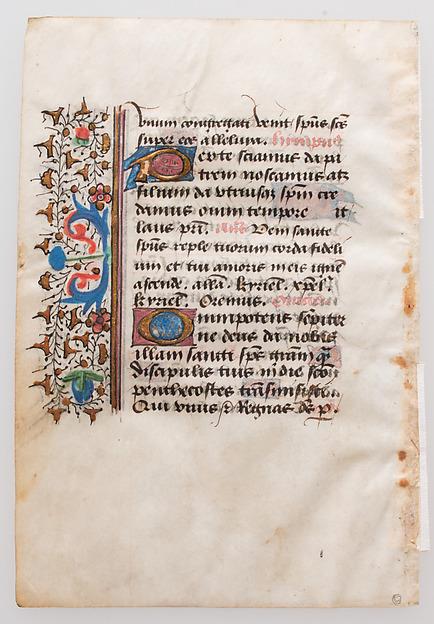 vnum congregati venit spūs scs
super eos alleluia.
Per te sciamus da pa
trem noscamus atq
filium da vtriusq spm cre
damus omni tempore it
laus pri. Veni sancte
spūs reple tuorum corda fideli
um et tui amoris in eis ignē
ascende. alla. kyriel. xpel.
kyriel. Oremus.
Omnipotens sempiter
ne deus da nobis
illam sancti spūs grām q̄
discipulis tuis in die scōu
penthecostes
Qui viuis et Regnas ds p.